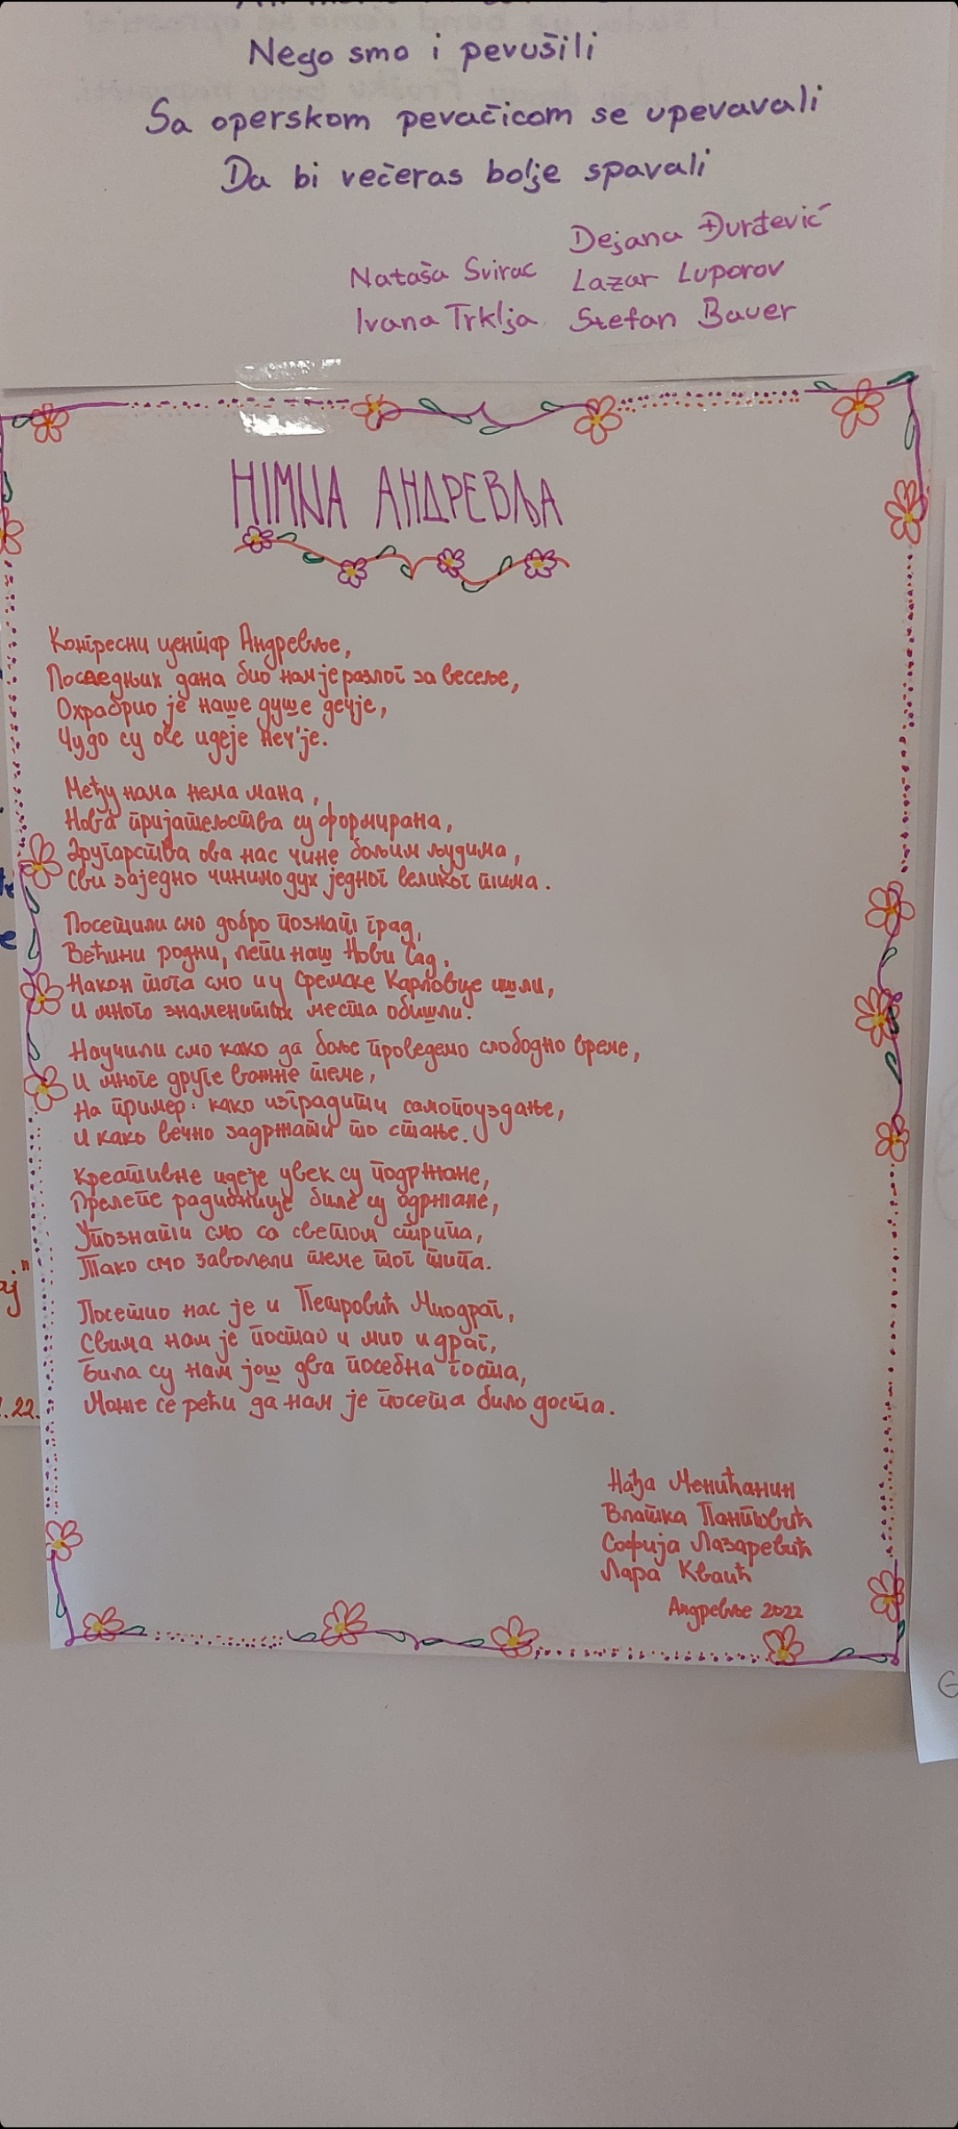 Nego smo i pevušili
Sa operskom pevačicom se upevavali
Da bi večeras bolje spavali
Dejana Đurđević
Nataša Svirac Lazar Luporov
Ivana Trklja Stefan Bauer
HIMNA АНДРЕВЉА
Конгресни центар Андревље,
Последњих дана био нам је разлог за весеље,
Охрабрио је наше душе дечје,
Чудо су ове идеје неч'је.
Међу нама нема мана,
Нова пријатељства су формирана,
Другарства ова нас чине бољим људима,
Сви заједно чинимо дух једног великог тима.
Посетили смо добро познати град,
Већини родни, лепи наш Нови Сад,
Након тога смо и у Сремске Карловце ишли,
И много знаменитих места обишли.
Научили смо како да боље проведемо слободно време,
И многе друге важне теме,
На пример: како изградити самопоуздање,
И како вечно задржати то стање.
Креативне идеје увек су подржане,
Прелепе радионице биле су одржане,
Упознати смо са светом стрипа,
Тако смо заволели теме тог типа.
Посетио нас је и Петровић Миодраг,
Свима нам је постао и мио и драг,
Била су нам још два посебна госта,
Може се рећи да нам је посета било доста.
Нађа Менићанин
Влатка Пантовић
Софија Лазаревић
Лара Кваић
Андревље 2022
.22.